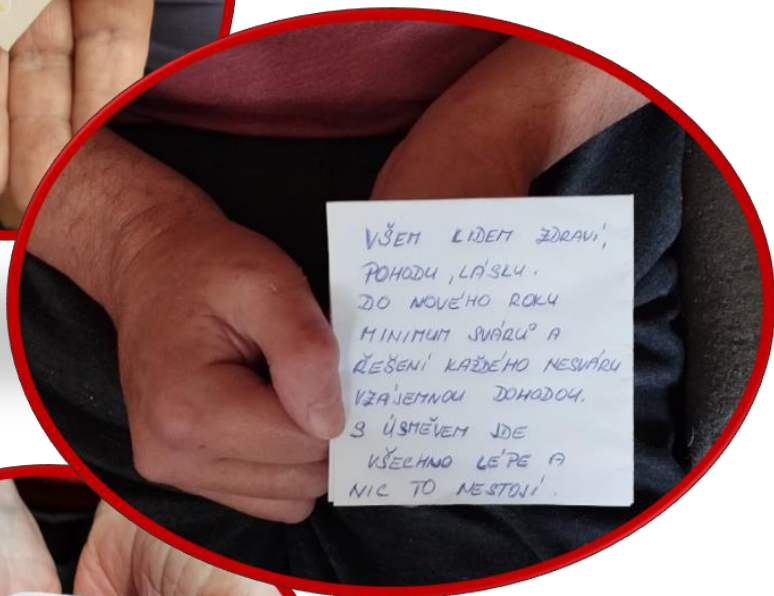 VŠEM LIDEM ZDRAVÍ,
POHODU, LÁSKU.
DO NOVÉHO ROKU
MINIMUM SVÁRŮ A
ŘEŠENÍ KAŽDÉHO NESVÁRU
VZÁJEMNOU DOHODOU.
S ÚSMĚVEM JDE
VŠECHNO LÉPE A
NIC TO NESTOJÍ.